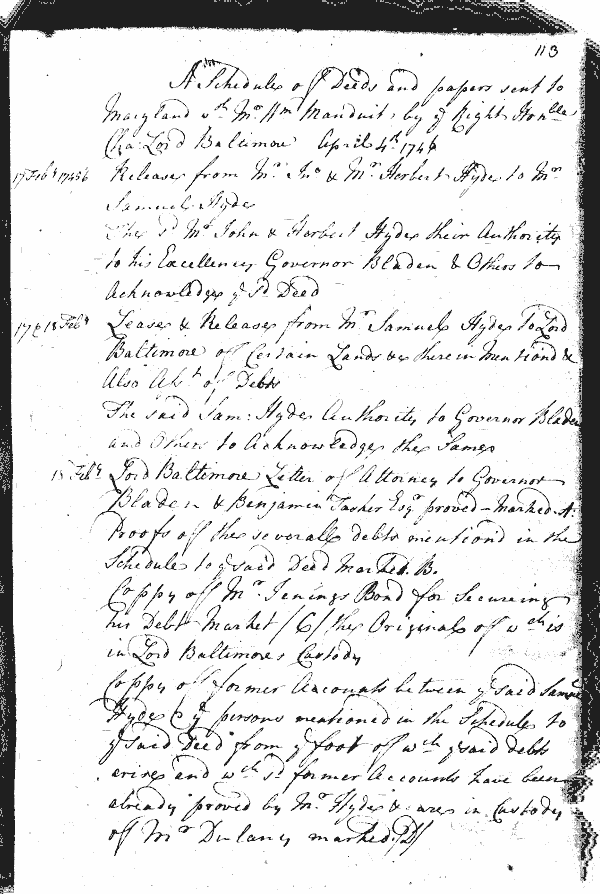 113
A Schedule of Deeds and papers sent to
Maryland wth Mr Wm Manduit by ye Right Honble
Cha: Lord Baltimore April 4th 1746
17 Feby 1745/6 Release from Mr Jno & Mr Herbert Hyde to Mr
Samuel Hyde
The sd Mr John & Herbert Hyde their Authority
to his Excellency Governor Bladen & Others to
Acknowledge ye sd Deed
17 & 18 Feby Lease & Release from Mr Samuel Hyde To Lord
Baltimore of Certain Lands &c therein Mentiond &
Also of Debts
The said Sam: Hyde Authority to Governor Bladen
and Others to Acknowledge the Same
18 Feby Lord Baltimore Letter of Attorney to Governor
Bladen & Benjamin Tasker Esqr proved - Marked A.
Proofs of the severall debts mentiond in the
Schedule to ye said Deed Marked. B.
Coppy of Mr Jenings Bond for Secureing
his Debt Market /C/ the Original of wch is
in Lord Baltimore Custody
Coppy of former Accounts between ye said Samuel
Hyde & ye persons mentioned in the Schedule to
ye said Deed from ye foot of wch ye said debts
arise and wch sd former Accounts have been
already proved by Mr Hyde & are in Custody
of Mr Dulany marked /D/